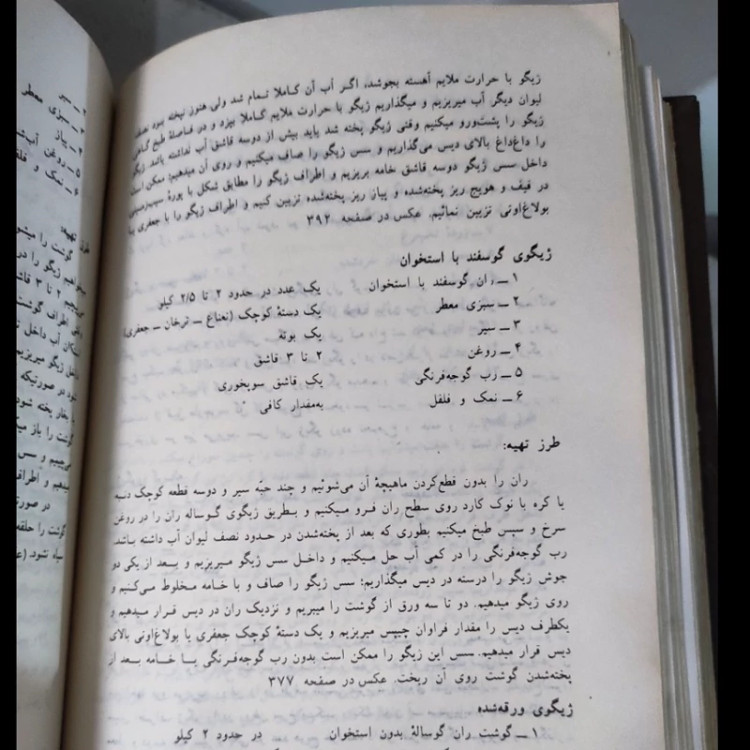 ژیگو با حرارت ملایم آهسته بجوشد، اگر آب آن کاملا تمام شد ولی هنوز نپخته بود نصف
لیوان دیگر آب میریزیم و میگذاریم ژیگو با حرارت ملایم کاملا بپزد و در فاصلهٔ طبخ گاهی
ژیگو را پشت‌ورو میکنیم وقتی ژیگو پخته شد باید بیش از دوسه قاشق آب نداشته باشد. ژیگو
را داغ‌داغ بالای دیس می‌گذاریم و سس ژیگو را صاف میکنیم و روی آن میدهیم: ممکن است
داخل سس ژیگو دوسه قاشق خامه بریزیم و اطراف ژیگو را مطابق شکل با پورهٔ سیب‌زمینی
در قیف و هویج ریز پخته‌شده و پیاز ریز پخته‌شده تزیین کنیم و اطراف ژیگو را با جعفری یا
بولاغ‌اوتی تزیین نمائیم. عکس در صفحه ۳۹۲
ژیگوی گوسفند با استخوان
۱ــ ران گوسفند با استخوان یک عدد در حدود ۲ تا ۲/۵ کیلو
۲ــ سبزی معطر یک دستهٔ کوچک (نعناع ــ ترخان ــ جعفری)
۳ــ سیر یک بوته
۴ــ روغن ۲ تا ۳ قاشق
۵ــ رب گوجه‌فرنگی یک قاشق سوپخوری
۶ــ نمک و فلفل به‌مقدار کافی
طرز تهیه:
ران را بدون قطع‌کردن ماهیچهٔ آن می‌شوئیم و چند حبّه سیر و دوسه قطعه کوچک دنبه
یا کره با نوک کارد روی سطح ران فرو میکنیم و بطریق ژیگوی گوساله ران را در روغن
سرخ و سپس طبخ میکنیم بطوری که بعد از پخته‌شدن در حدود نصف لیوان آب داشته باشد.
رب گوجه‌فرنگی را در کمی آب حل میکنیم و داخل سس ژیگو میریزیم و بعد از یکی دو
جوش ژیگو را درسته در دیس میگذاریم: سس ژیگو را صاف و با خامه مخلوط می‌کنیم و
روی ژیگو میدهیم. دو تا سه ورق از گوشت را میبریم و نزدیک ران در دیس قرار میدهیم و
یکطرف دیس را مقدار فراوان چیپس میریزیم و یک دستهٔ کوچک جعفری یا بولاغ‌اوتی بالای
دیس قرار میدهیم. سس این ژیگو را ممکن است بدون رب گوجه‌فرنگی یا خامه بعد از
پخته‌شدن گوشت روی آن ریخت. عکس در صفحه ۳۷۷
ژیگوی ورقه‌شده
۱ــ گوشت ران گوسالهٔ بدون استخوان در حدود ۲ کیلو
۲ــ سیر
۳ــ سبزی معطر
۴ــ پیاز
۵ــ روغن
۶ــ نمک و فلفل
طرز تهیه:
گوشت را میشو